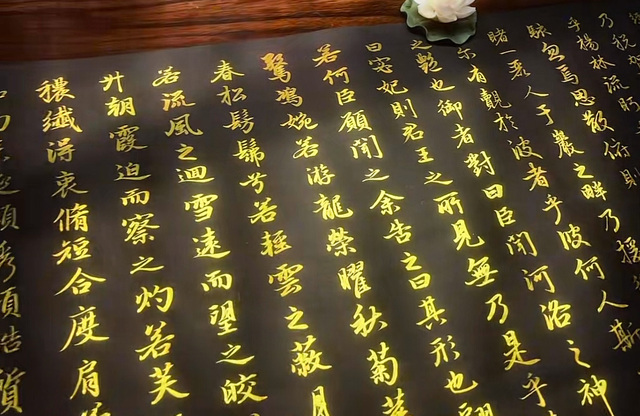 乃税
乎楊林流眄
駭忽焉思散俯則
睹一麗人于巖之畔乃援
尔有覿於彼者乎彼何人斯
之艷也御者對曰臣聞河洛之神
曰宓妃則君王之所見無乃是乎
若何臣願聞之余告之曰其形也翩
驚鴻婉若游龍榮曜秋菊
春松髣髴兮若輕雲之蔽月
若流風之迴雪遠而望之皎
升朝霞迫而察之灼若芙
穠纖得衷脩短合度肩
秀項 質